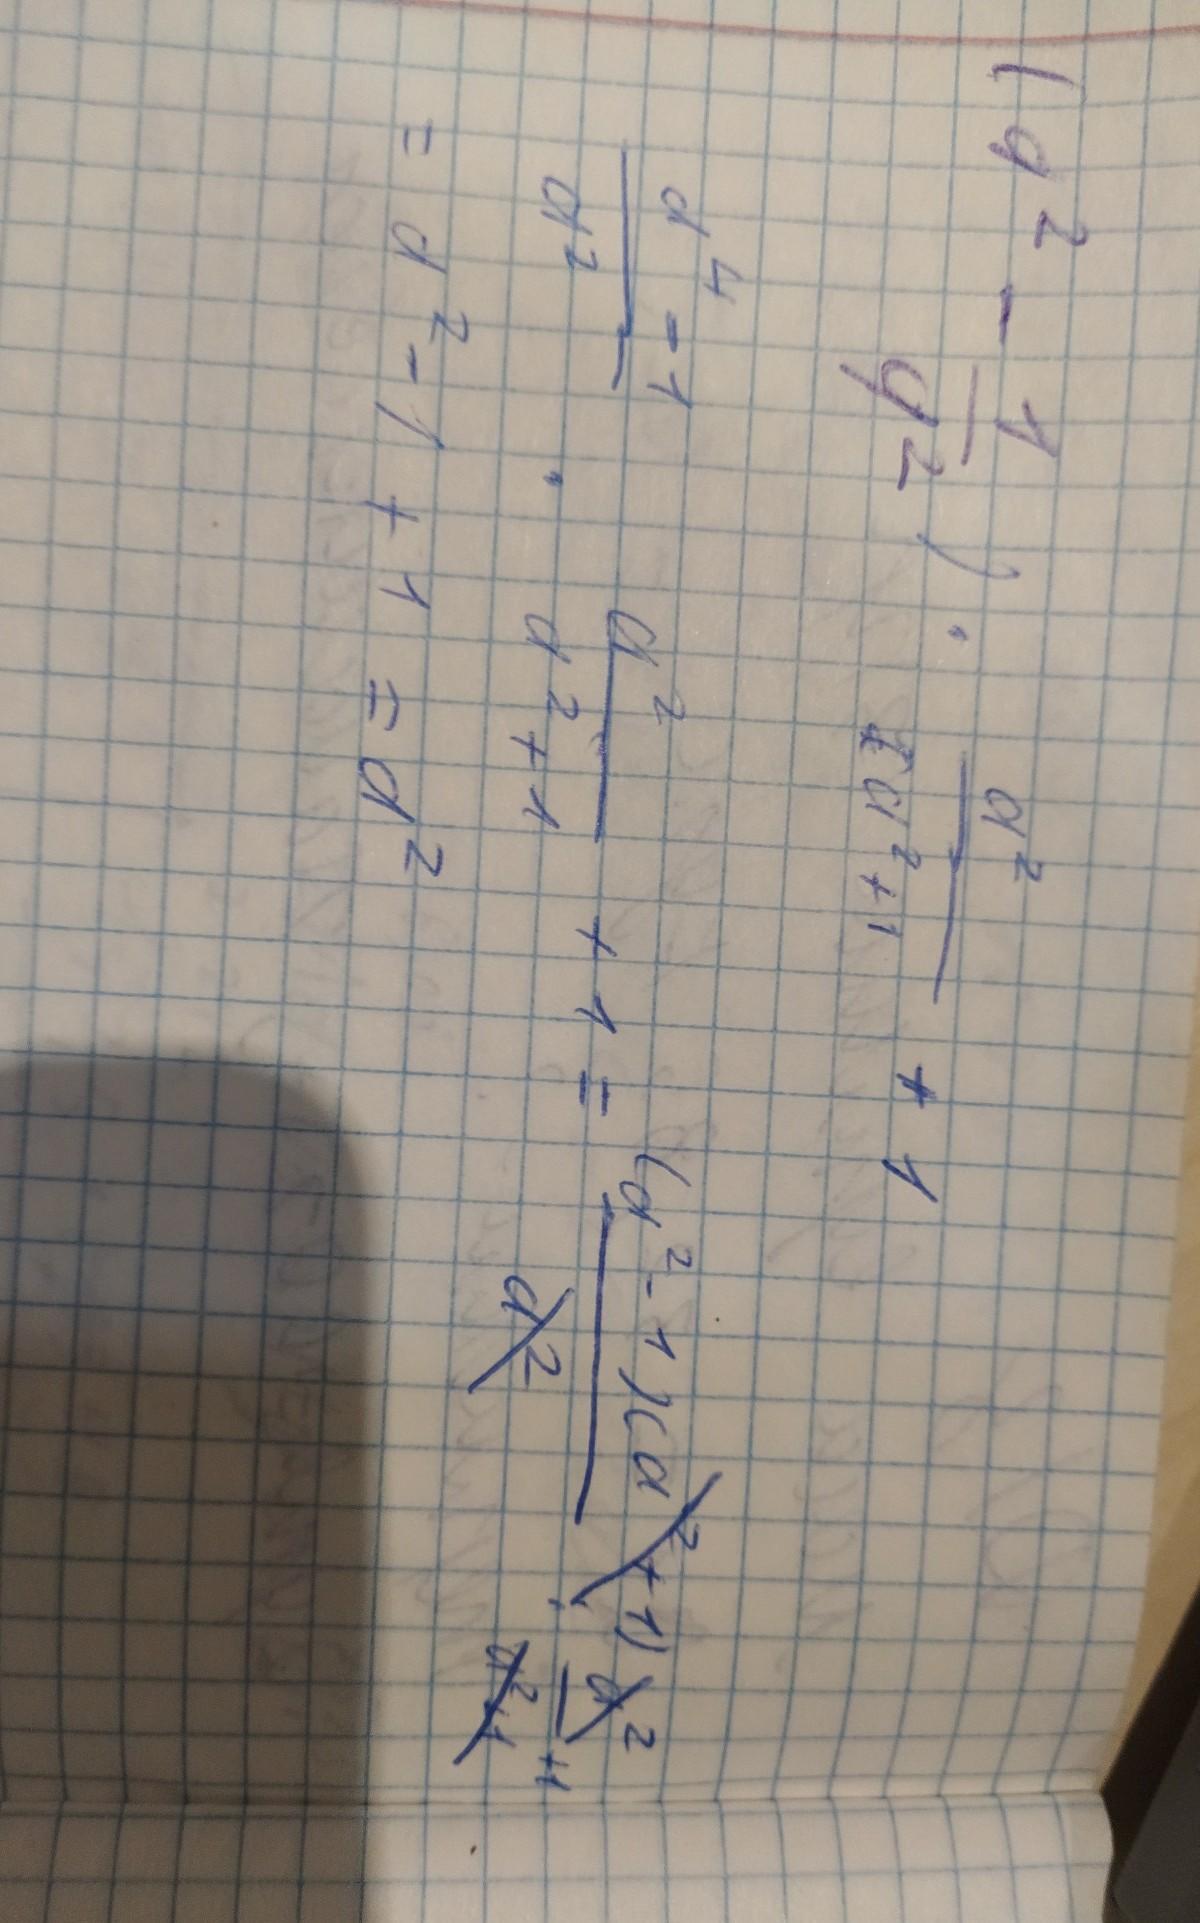 (a² - 1/a²) · a²/(a²+1) + 1
(a⁴-1)/a² · a²/(a²+1) + 1 = (a²-1)(a²+1)/a² · a²/(a²+1) +1
= a² - 1 + 1 = a²